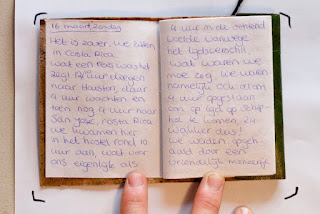 16 maart, zondag
Het is zover, we zitten
in Costa Rica
wat een reis was het
zeg! 12 uur vliegen
naar Houston, daar
4 uur wachten en
toen nog 4 uur naar
San Jose, costa Rica
we kwamen hier
in het hostel rond 10
uur aan, wat voor
ons eigenlijk als
4 uur in de ochtend
voelde vanwege
het tijdsverschil.
wat waren we
moe zeg. we waren
namelijk ook al om
4 uur opgestaan
om op tijd op Schip-
hol te komen, 24
wakker dus!
we worden opgeh-
aald door een
vriendelijk mannetje